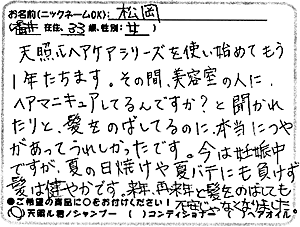 お名前(ニックネームOK): 松岡
在住、33歳、性別: 女 )
天照ルヘアケアシリーズを使い始めてもう
1年たちます。その間、美容室の人に、
ヘアマニキュアしてるんですか?と聞かれ
たりと、髪をのばしてるのに、本当につや
があってうれしかったです。今は妊娠中
ですが、夏の日焼けや夏バテにも負けず
髪は健やかです。来年、再来年と髪をのばしても
不安じゃなくなりました
●ご希望の商品に○をお付けください!
天照ル君ノシャンプー ( )コンディショナー ( )ヘアオイル